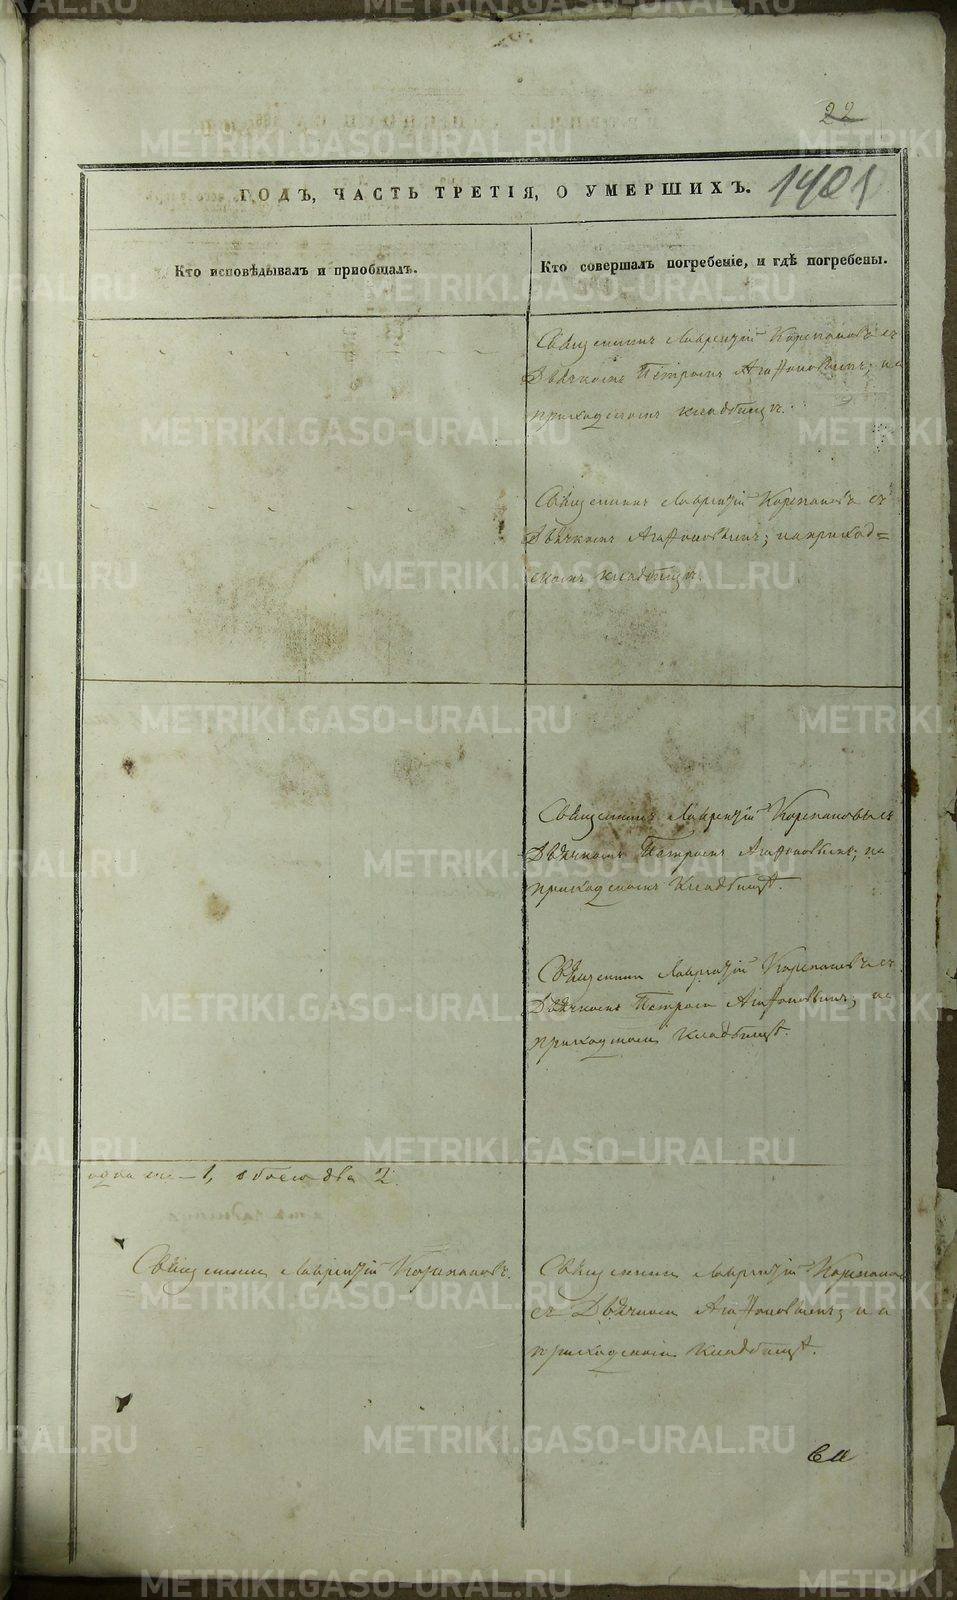 22
1401
ГОДЪ, ЧАСТЬ ТРЕТІЯ, О УМЕРШИХЪ.
Кто исповѣдывалъ и пріобщалъ.
Кто совершалъ погребеніе, и гдѣ погребены.
Священникъ Лаврентій Корепановъ съ
Дьячкомъ Петромъ Агафоновымъ; на
приходскомъ кладбищѣ.
Священникъ Лаврентій Корепановъ съ
Дьячкомъ Агафоновымъ; на приход=
скомъ кладбищѣ.
Священникъ Лаврентій Корепановъ съ
Дьячкомъ Петромъ Агафоновымъ; на
приходскомъ Кладбищѣ.
Священникъ Лаврентій Корепановъ съ
Дьячкомъ Петромъ Агафоновымъ; на
приходскомъ Кладбищѣ.
1, обоего два 2.
Священникъ Лаврентій Корепановъ.
Священникъ Лаврентій Корепановъ
съ Дьячкомъ Агафоновымъ; на
приходскомъ Кладбищѣ.
METRIKI.GASO-URAL.RU